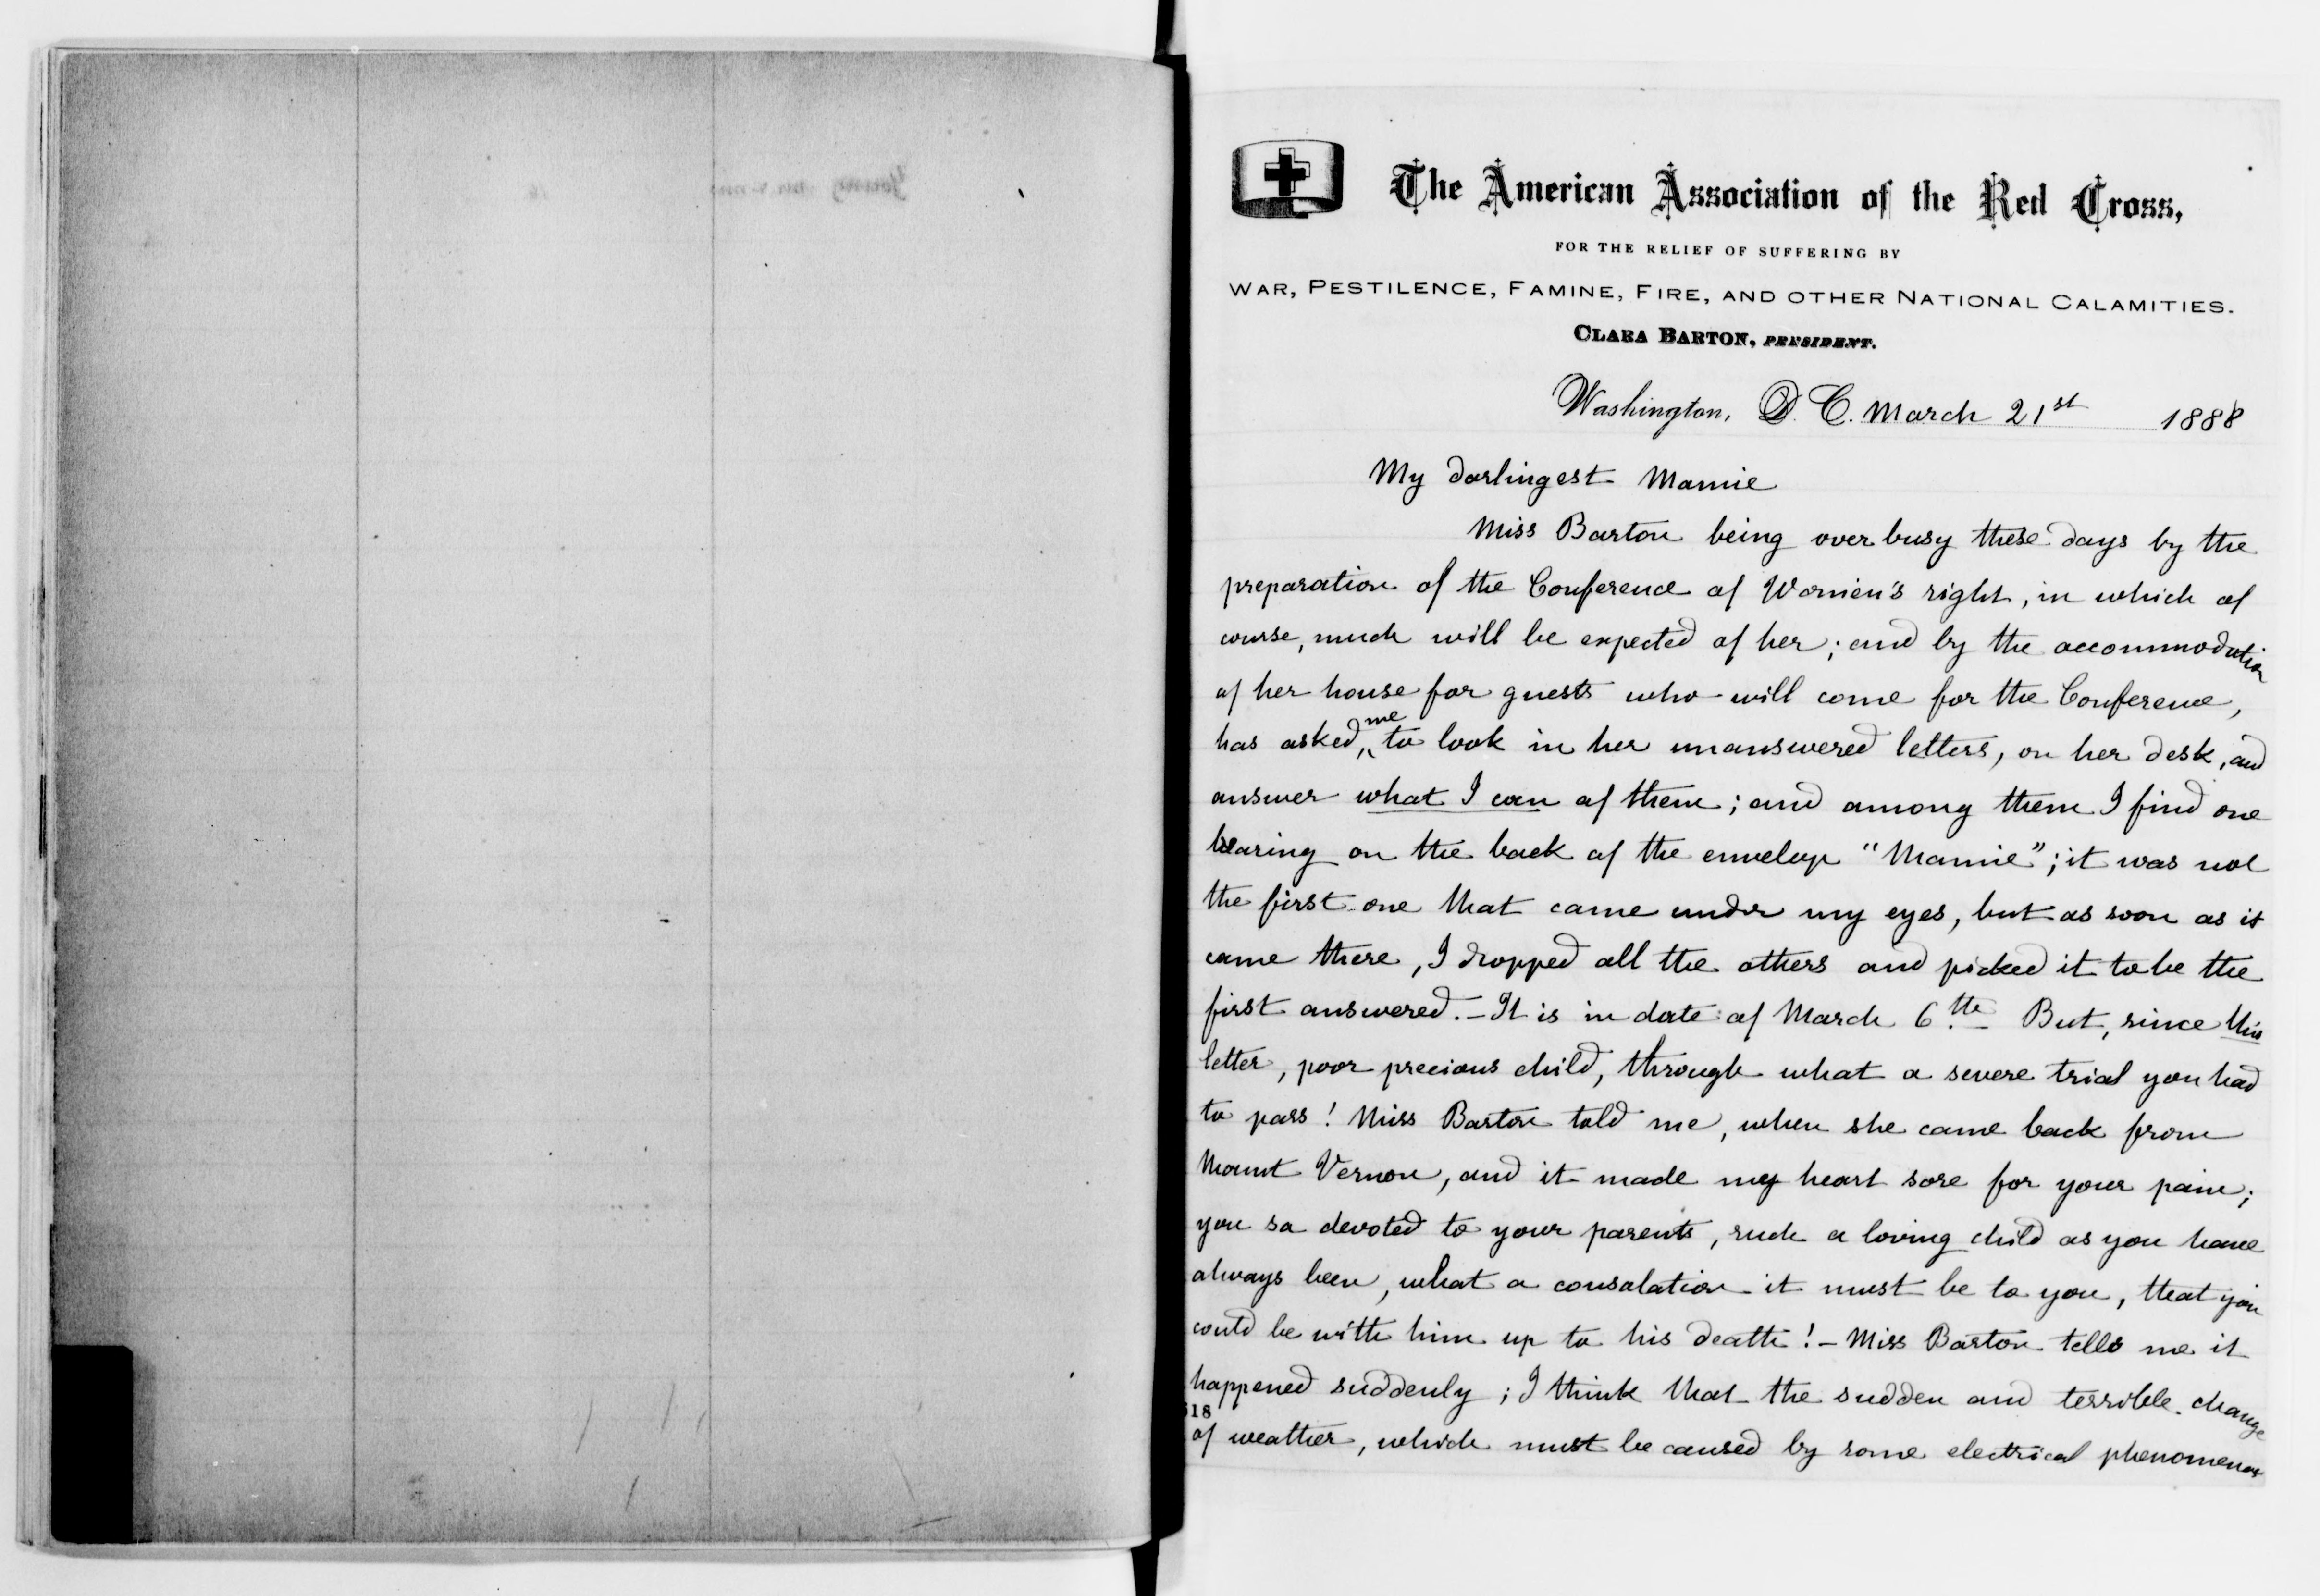 The American Association of the Red Cross,
FOR THE RELIEF OF SUFFERING BY
WAR, PESTILENCE, FAMINE, FIRE, AND OTHER NATIONAL CALAMITIES.
CLARA BARTON, PRESIDENT.
Washington, D. C. March 21st 1888
My darlingest Mamie
Miss Barton being over busy these days by the
preparation of the Conference of Women's right, in which of
course, much will be expected of her; and by the accommodation
of her house for guests who will come for the Conference,
has asked, me to look in her unanswered letters, on her desk, and
answer what I can of them; and among them I find one
bearing on the back of the envelop "Mamie"; it was not
the first one that came under my eyes, but as soon as it
came there, I dropped all the others and picked it to be the
first answered. – It is in date of March 6th. But, since this
letter, poor precious child, through what a severe trial you had
to pass! Miss Barton told me, when she came back from
Mount Vernon, and it made my heart sore for your pain;
you so devoted to your parents, such a loving child as you have
always been, what a consolation it must be to you, that you
could be with him up to his death! – Miss Barton tells me it
happened suddenly; I think that the sudden and terrible change
18
of weather, which must be caused by some electrical phenomenas